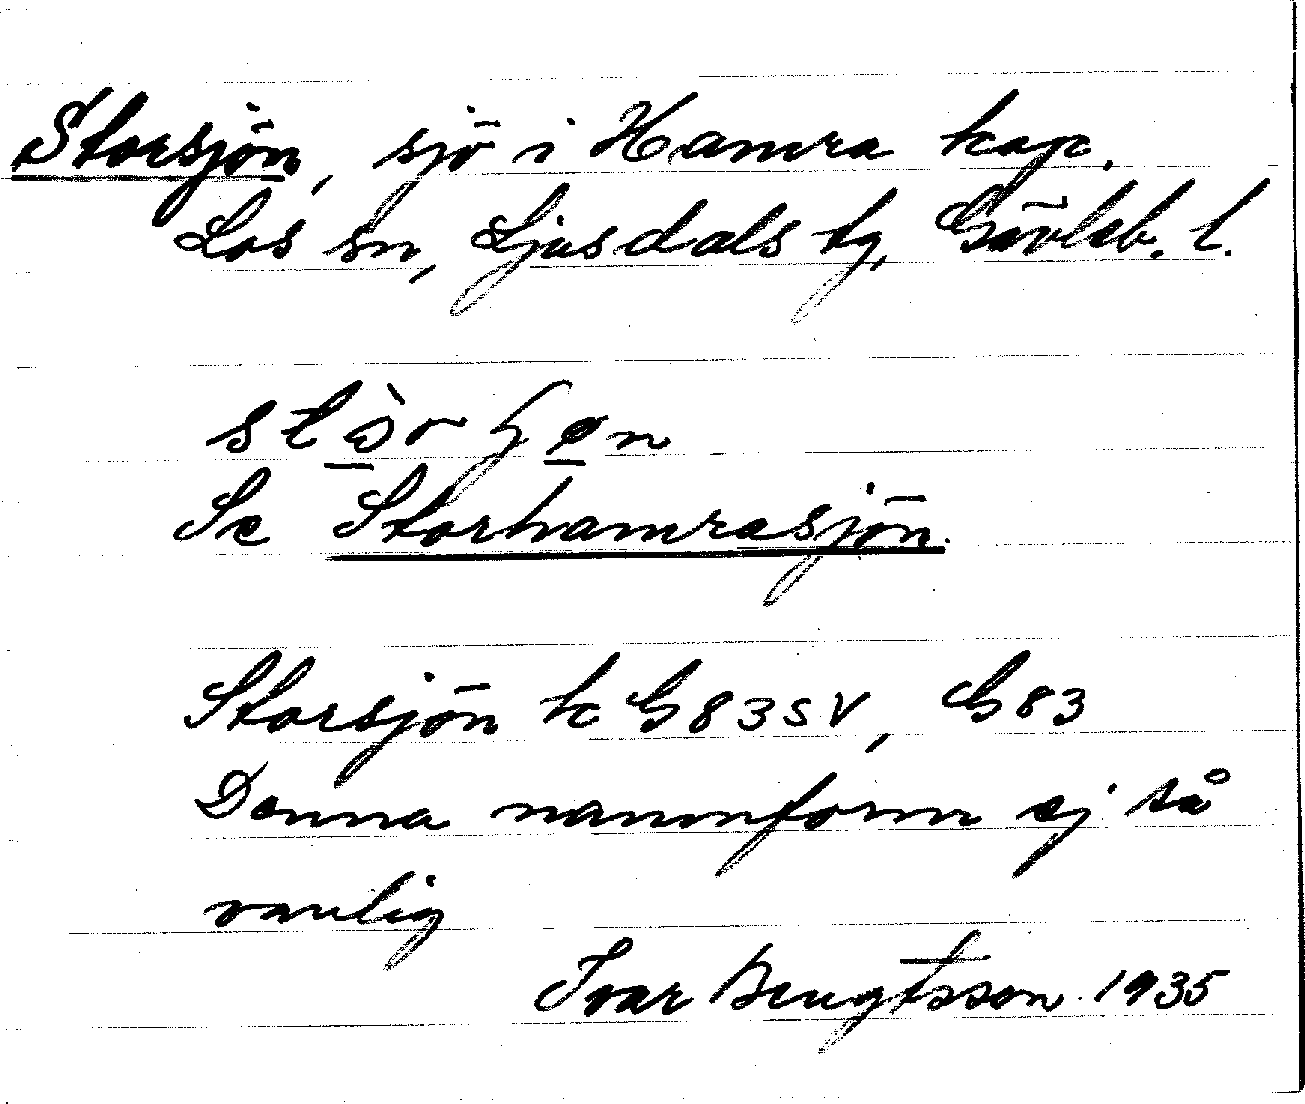 Storsjön, sjö i Hamra kap.
Los sn, Ljusdals tg, Gävleb. l.
Se Storhamrasjön.
Storsjön k G83SV, G83
Denna namnform ej så
vanlig
Ivar Bengtsson 1935